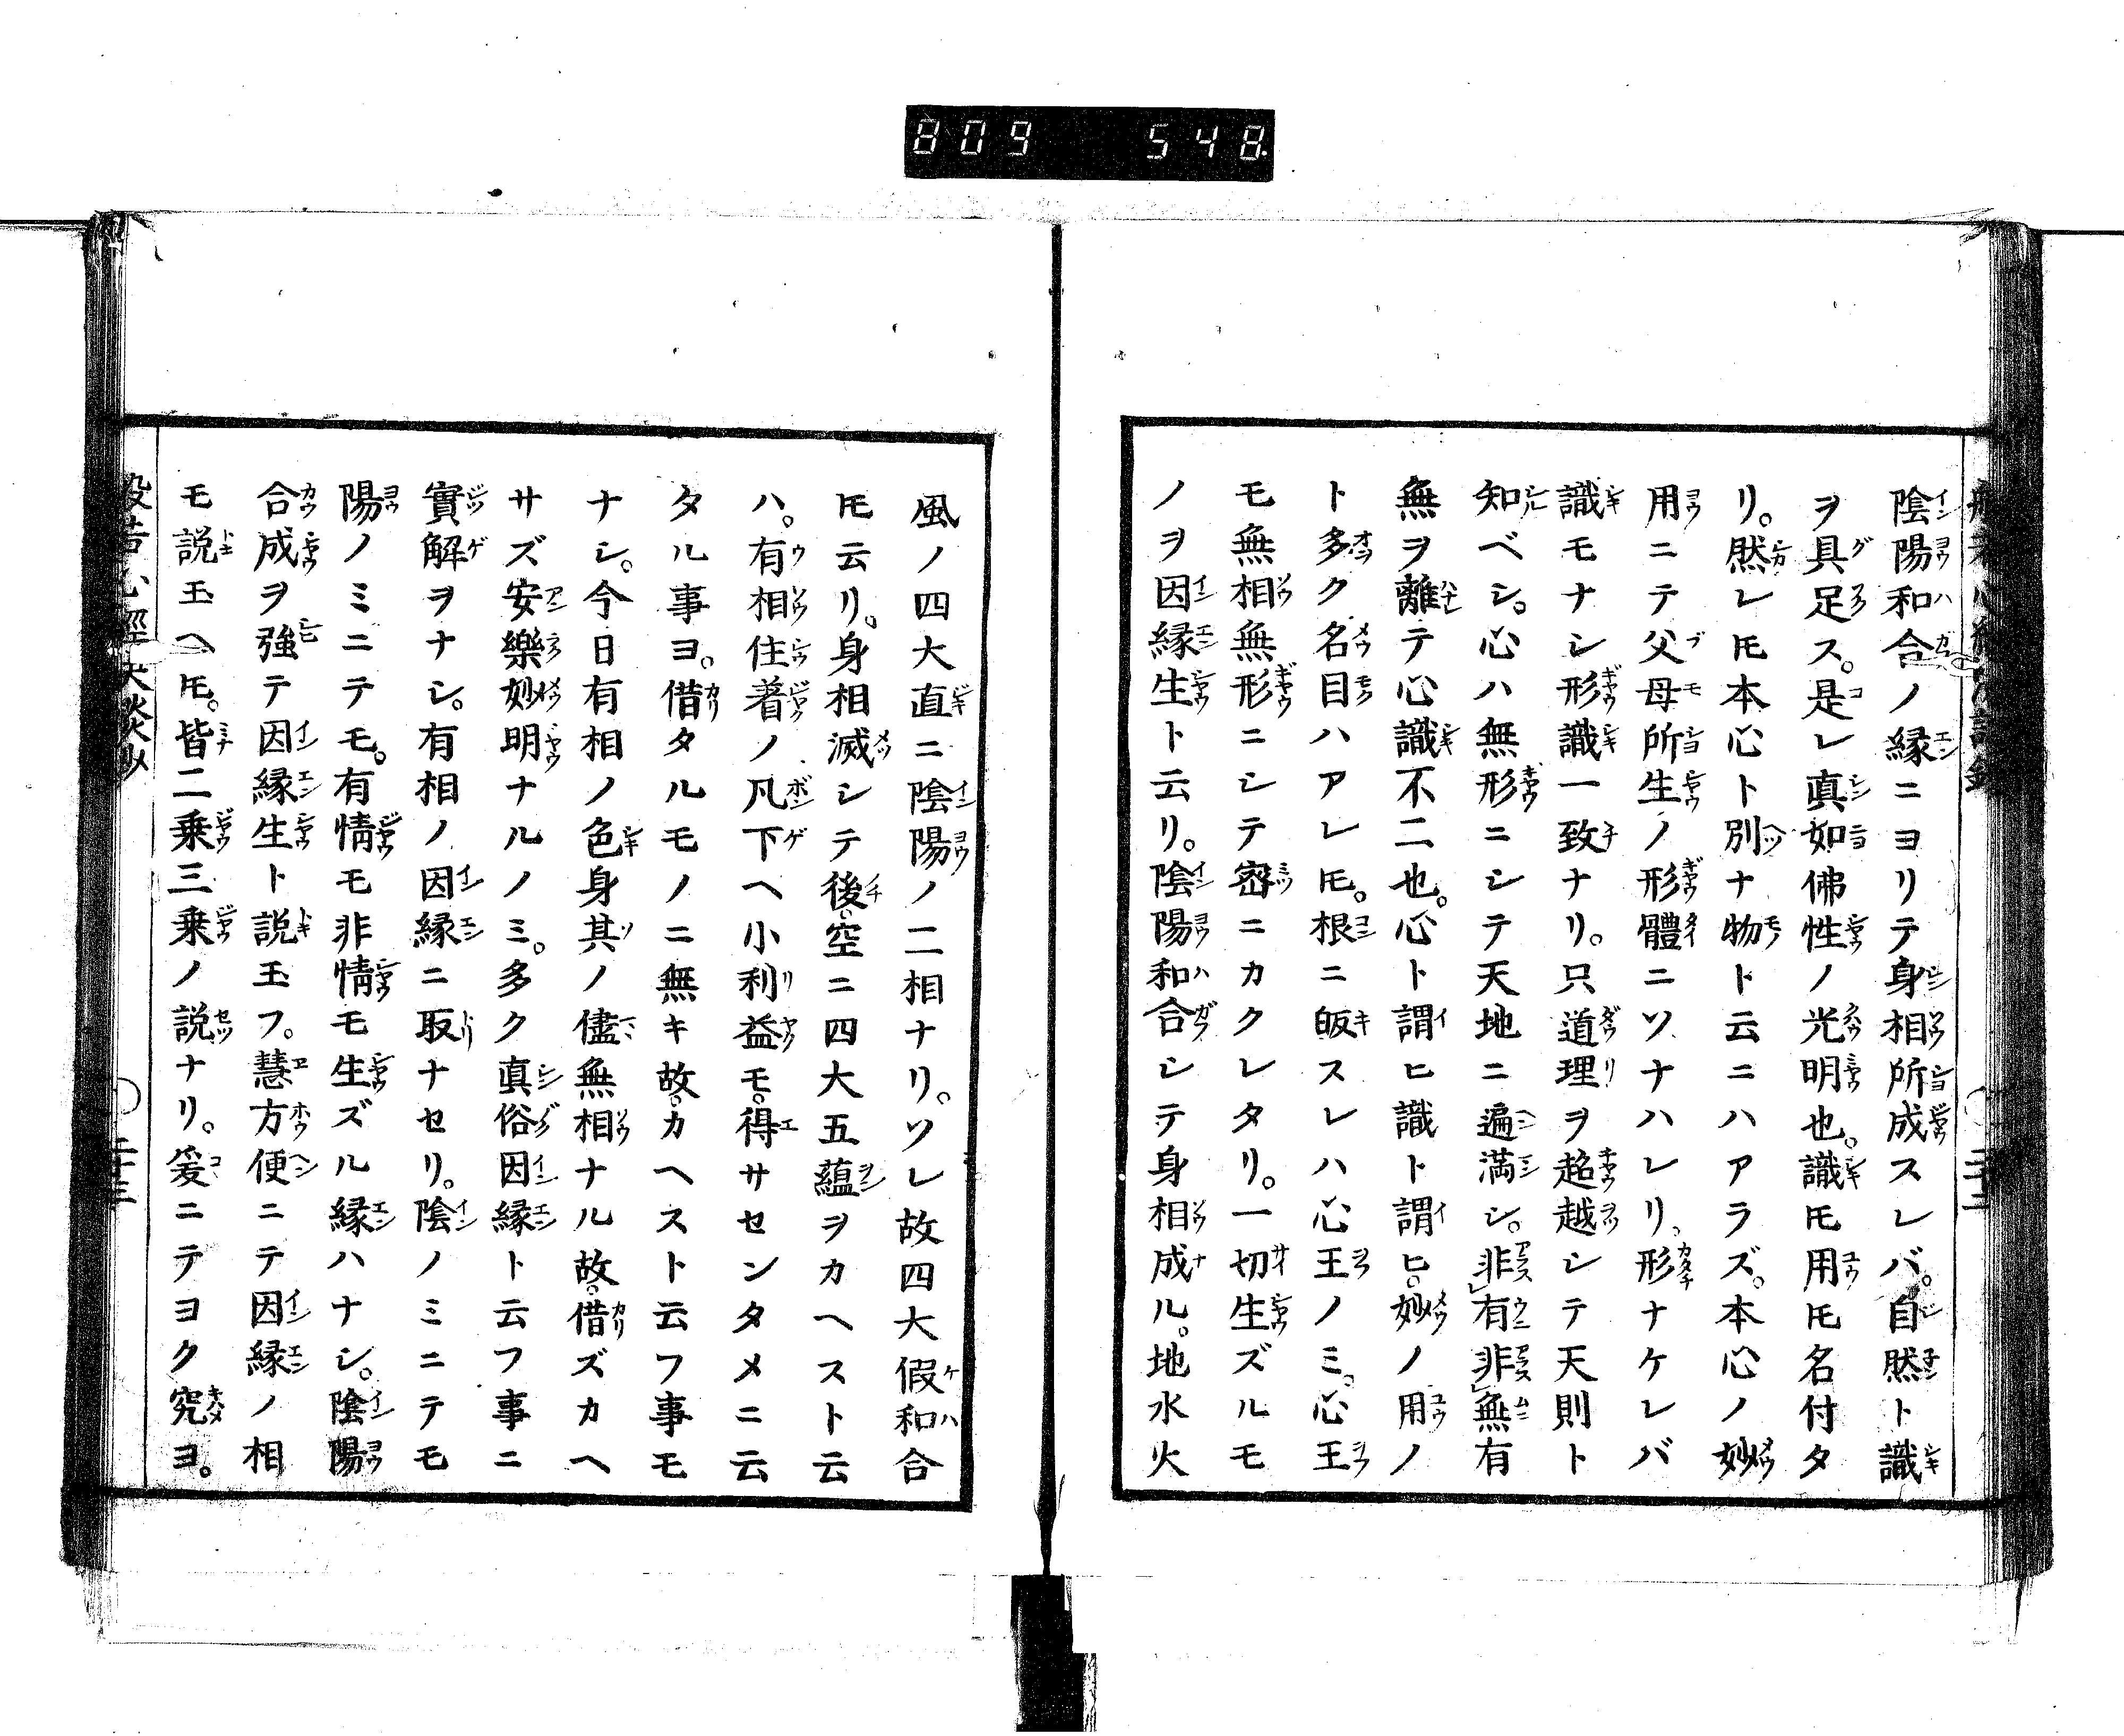 809 548
陰陽和合ノ縁ニヨリテ身相所成スレバ。自然ト識
ヲ具足ス。是レ真如佛性ノ光明也。識𪜈用𪜈名付タ
リ。然レ𪜈本心ト別ナ物ト云ニハアラズ。本心ノ妙
用ニテ父母所生ノ形體ニソナハレリ。形ナケレバ
識モナシ形識一致ナリ。只道理ヲ超越シテ天則ト
知ベシ。心ハ無形ニシテ天地ニ遍満シ。非有非無有
無ヲ離テ心識不二也。心ト謂ヒ識ト謂ヒ。妙ノ用ノ
ト多ク名目ハアレ𪜈。根ニ皈スレハ心王ノミ。心王
モ無相無形ニシテ密ニカクレタリ。一切生ズルモ
ノヲ因縁生ト云リ。陰陽和合シテ身相成ル。地水火
風ノ四大直ニ陰陽ノ二相ナリ。ソレ故四大假和合
𪜈云リ。身相滅シテ後。空ニ四大五蘊ヲカヘスト云
ハ。有相住着ノ凡下ヘ小利益モ。得サセンタメニ云
タル事ヨ。借タルモノニ無キ故。カヘスト云フ事モ
ナシ。今日有相ノ色身其ノ儘無相ナル故。借ズカヘ
サズ安樂妙明ナルノミ。多ク真俗因縁ト云フ事ニ
實解ヲナシ。有相ノ因縁ニ取ナセリ。陰ノミニテモ
陽ノミニテモ。有情モ非情モ生ズル縁ハナシ。陰陽
合成ヲ強テ因縁生ト説玉フ。慧方便ニテ因縁ノ相
モ説玉ヘ𪜈。皆二乗三乗ノ説ナリ。爰ニテヨク究ヨ。
二十三